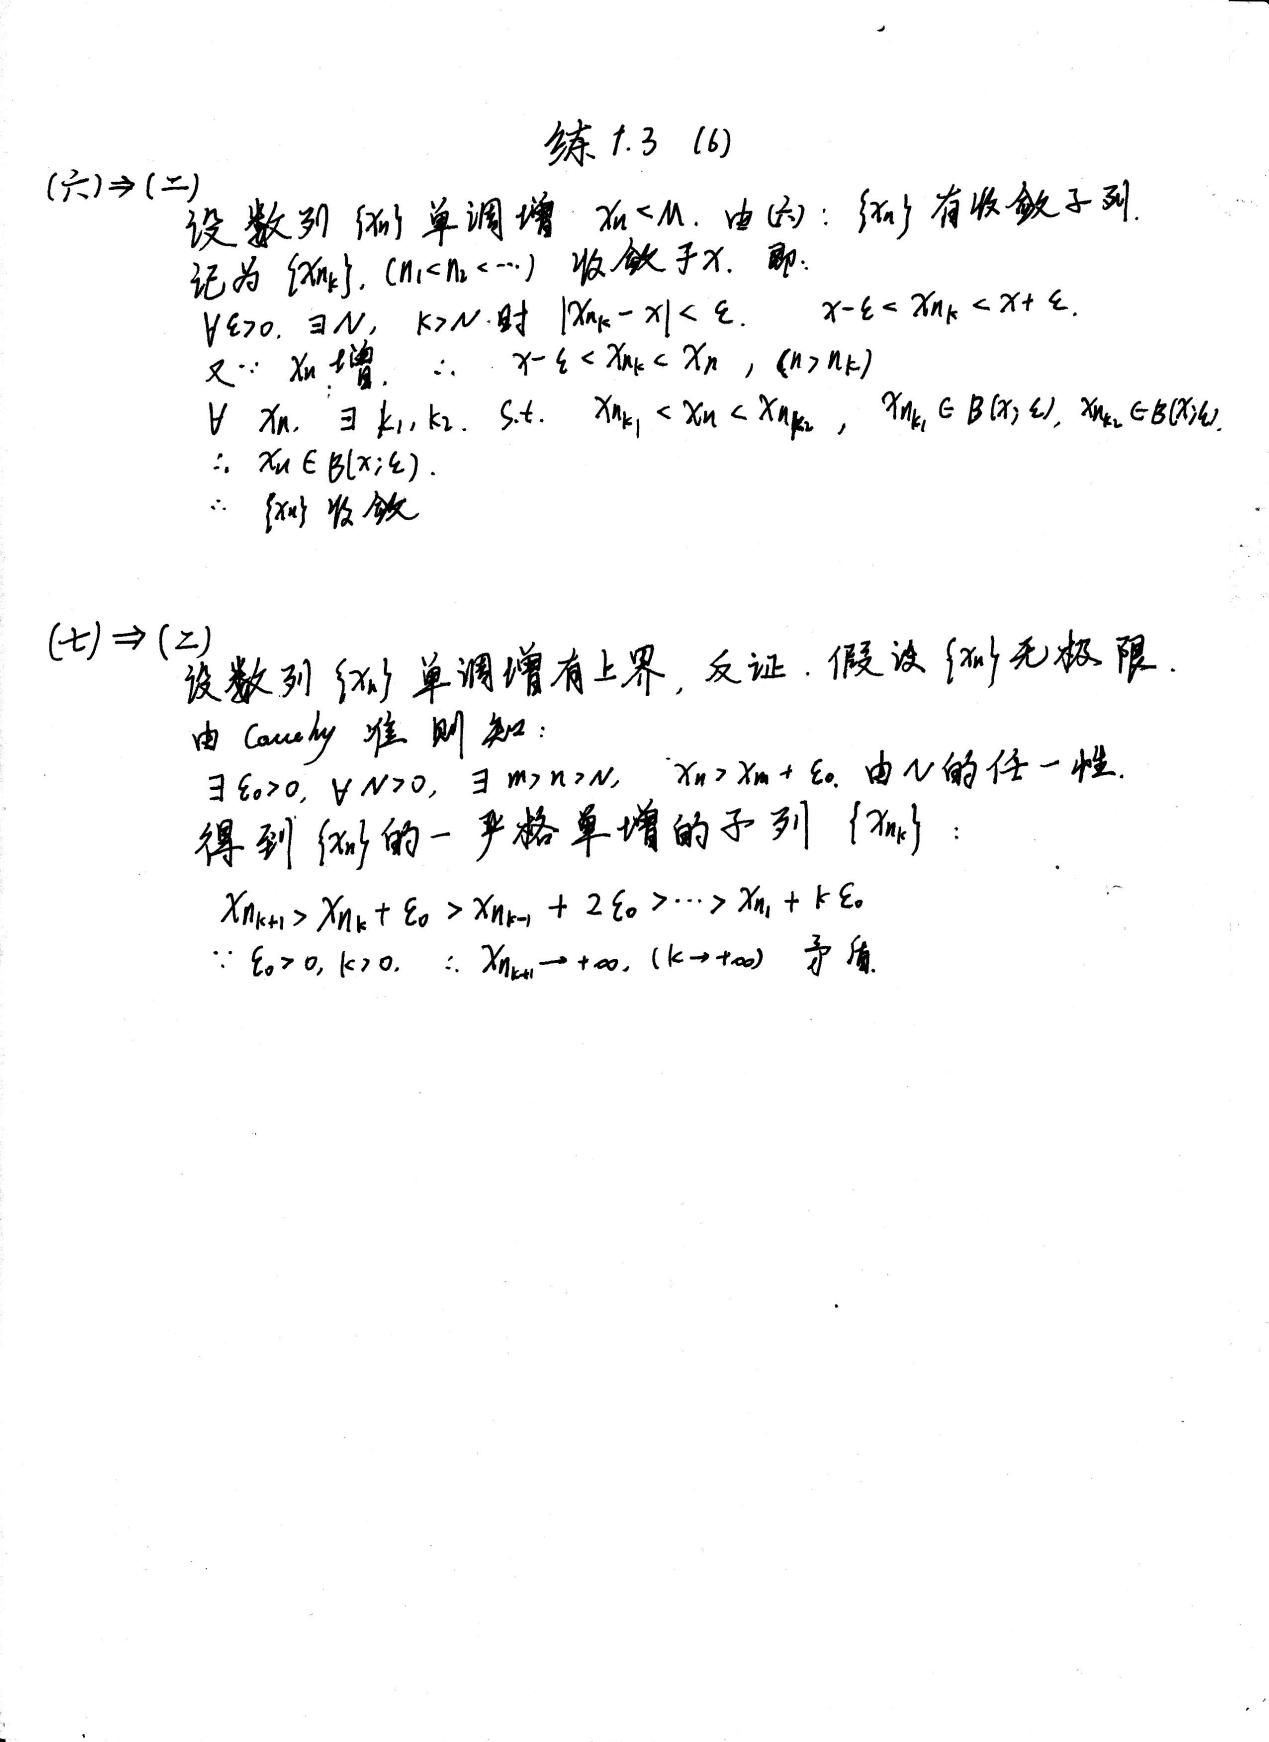 练1.3 (6)
(六)⇒(二)
设数列{xn}单调增 xn<M. 由(六): {xn}有收敛子列.
记为{xnk}, (n1<n2<…) 收敛于x. 即:
∀ε>0. ∃N, k>N时 |xnk-x|<ε. x-ε<xnk<x+ε.
又∵ xn增. ∴ x-ε<xnk<xn, (n>nk)
∀ xn, ∃ k1, k2. s.t. xnk1<xn<xnk2, xnk1∈B(x;ε), xnk2∈B(x;ε).
∴ xn∈B(x;ε).
∴ {xn}收敛
(七)⇒(二)
设数列{xn}单调增有上界, 反证. 假设{xn}无极限.
由Cauchy准则知:
∃ε0>0, ∀N>0, ∃m>n>N, xn>xm+ε0. 由N的任一性.
得到{xn}的一严格单增的子列{xnk}:
xnk+1>xnk+ε0>xnk-1+2ε0>…>xn1+kε0
∵ ε0>0, k>0. ∴ xnk+1→+∞. (k→+∞) 矛盾.